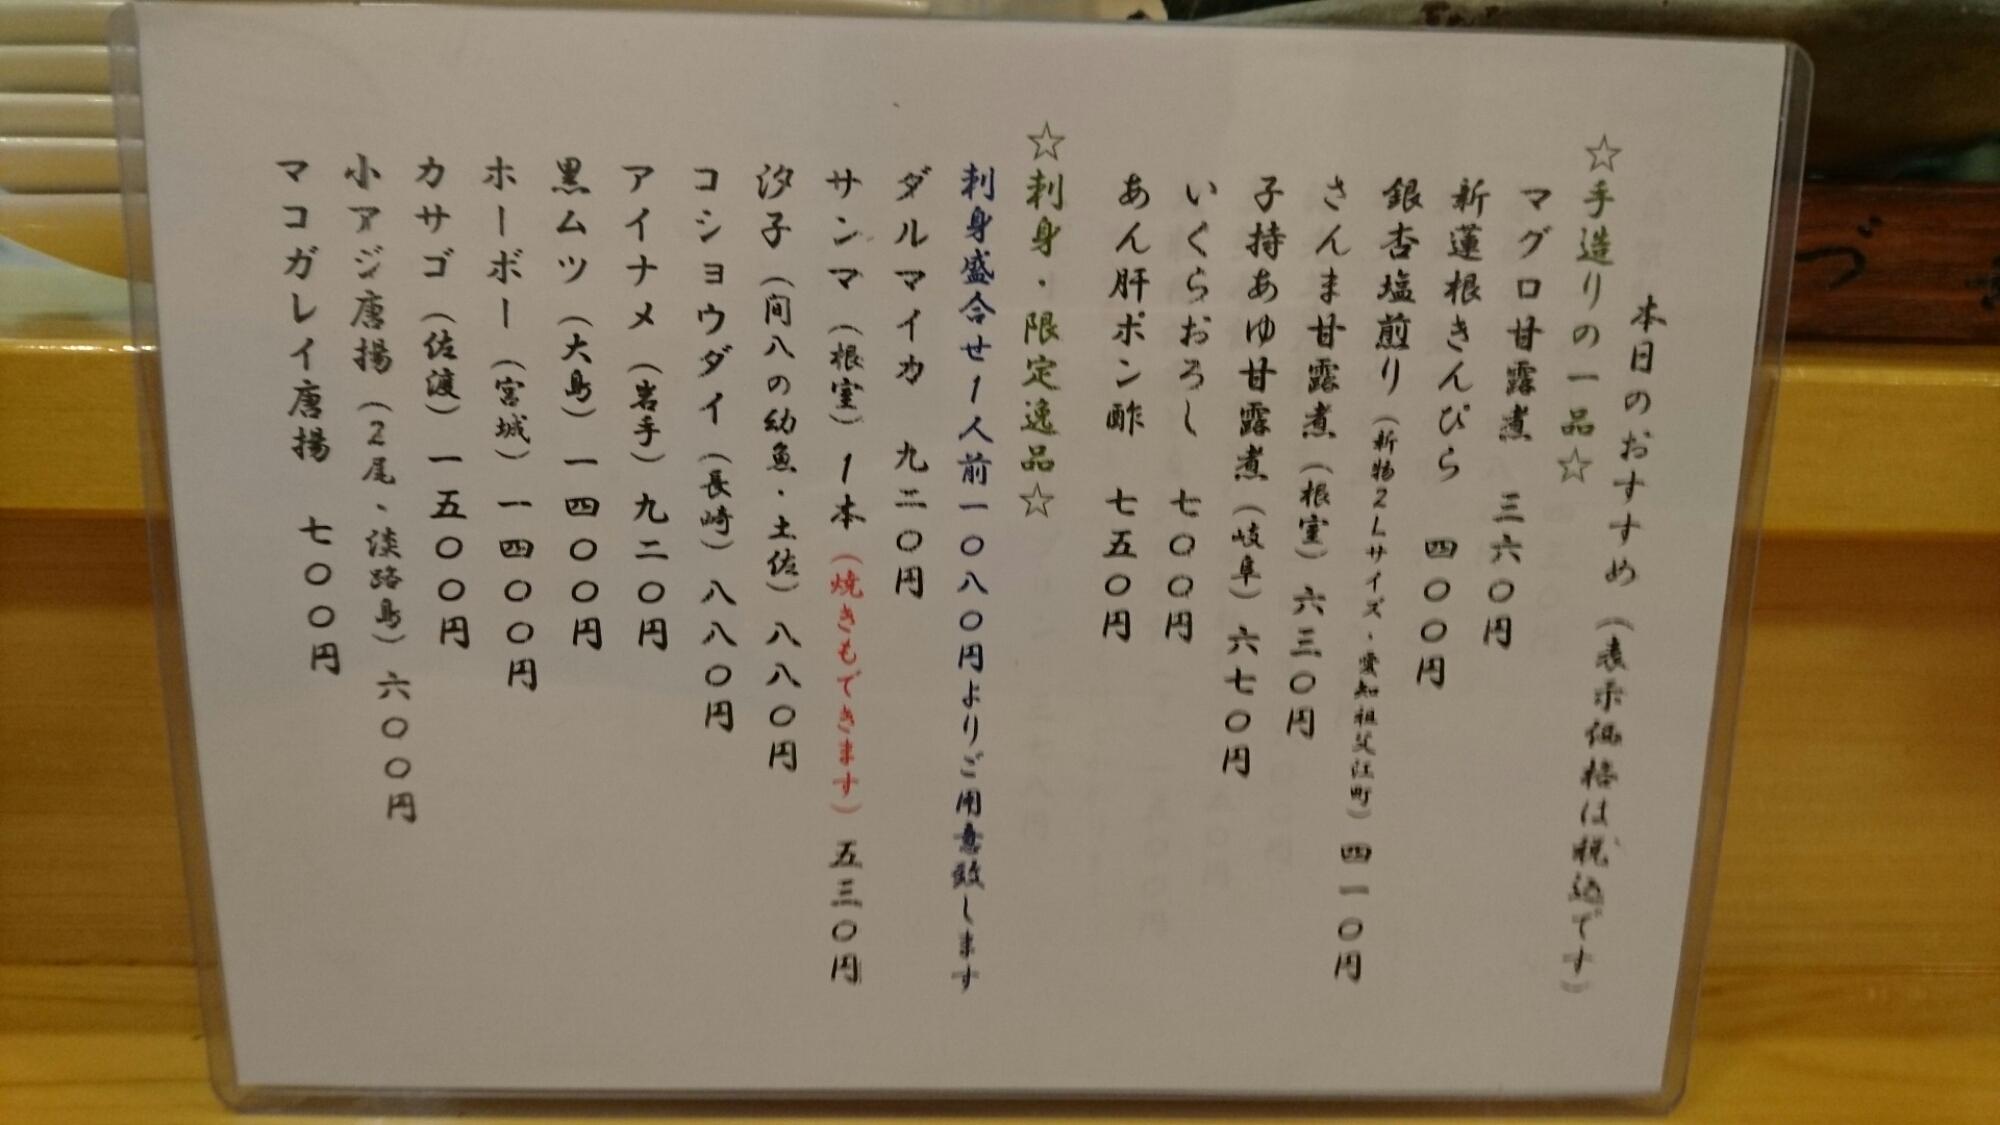 本日のおすすめ（表示価格は税込です）
☆手造りの一品☆
マグロ甘露煮 三六〇円
新蓮根きんぴら 四〇〇円
銀杏塩煎り（新物2Lサイズ・愛知祖父江町）四一〇円
さんま甘露煮（根室）六三〇円
子持あゆ甘露煮（岐阜）六七〇円
いくらおろし 七〇〇円
あん肝ポン酢 七五〇円
☆刺身・限定逸品☆
刺身盛合せ1人前一〇八〇円よりご用意致します
ダルマイカ 九二〇円
サンマ（根室）1本（焼きもできます）五三〇円
汐子（間八の幼魚・土佐）八八〇円
コショウダイ（長崎）八八〇円
アイナメ（岩手）九二〇円
黒ムツ（大島）一四〇〇円
ホーボー（宮城）一四〇〇円
カサゴ（佐渡）一五〇〇円
小アジ唐揚（2尾、淡路島）六〇〇円
マコガレイ唐揚 七〇〇円
づ